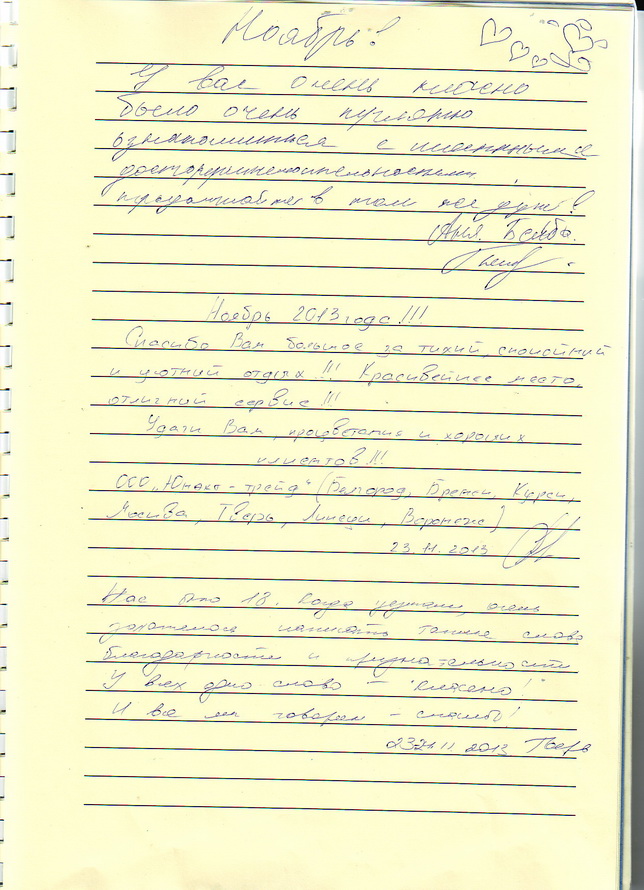 Ноябрь!
У вас очень классно
было очень приятно
ознакомиться с местными
достопримечательностями,
продолжайте в том же духе!
Аня.
Ноябрь 2013 года!!!
Спасибо Вам большое за тихий, спокойний
и уютний отдых!!! Красивейшее место,
отличний сервис!!!
Удачи Вам, процветания и хороших
клиентов!!!
ООО "Юнакс-трейд" (Белгород, Брянск, Курск,
Москва, Тверь, Липецк, Воронеж)
23.11.2013
Нас было 18. Когда уезжали, очень
захотелось написать теплые слова
благодарности и признательности
У всех одно слово – "классно!"
И все мы говорим – спасибо!
11 2013 Тверь